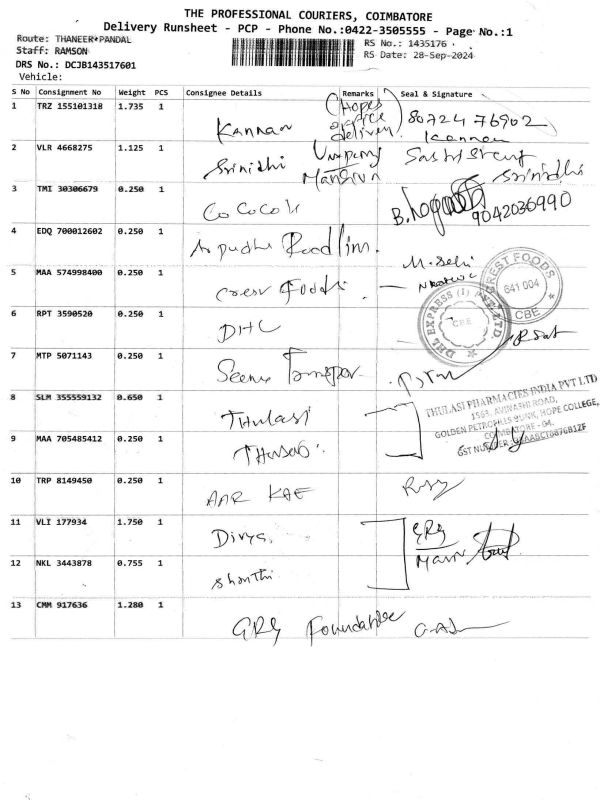 THE PROFESSIONAL COURIERS, COIMBATORE
Delivery Runsheet - PCP - Phone No.:0422-3505555 - Page No.:1
Route: THANEER*PANDAL
RS No.: 1435176
Staff: RAMSON
RS Date: 28-Sep-2024
DRS No.: DCJB143517601
Vehicle:
S No Consignment No Weight PCS Consignee Details Remarks Seal & Signature
1 TRZ 155101318 1.735 1 Kannan (Hopes office delivery) 8072476902
Kannan
2 VLR 4668275 1.125 1 Srinidhi Srinidhi
3 TMI 30306679 0.250 1 CoCoCoh 9042036990
4 EDQ 700012602 0.250 1
5 MAA 574998400 0.250 1 Crest Foods
CREST FOODS
641 004
CBE
6 RPT 3590520 0.250 1 DHL
DHL EXPRESS (I) PVT. LTD.
CBE
7 MTP 5071143 0.250 1
8 SLM 355559132 0.650 1 THulasi
THULASI PHARMACIES INDIA PVT LTD
1563, AVINASHI ROAD,
GOLDEN PETROLUS BUNK, HOPE COLLEGE,
COIMBATORE - 04.
GST NUMBER
9 MAA 705485412 0.250 1
10 TRP 8149450 0.250 1 AAR KAE
11 VLI 177934 1.750 1 Divya. GRG
12 NKL 3443878 0.755 1 Shanthi
13 CMM 917636 1.280 1 GRG